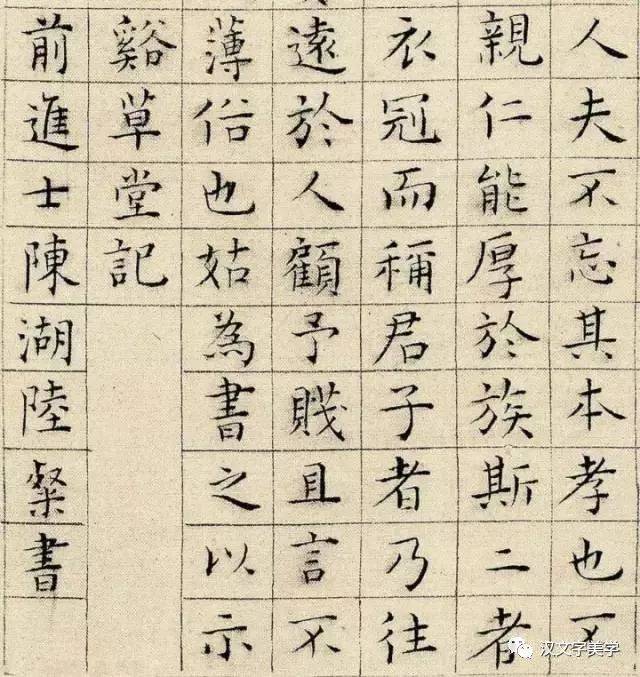 人夫不忘其本孝也不
親仁能厚於族斯二者
衣冠而稱君子者乃往
遠於人顧予賤且言不
薄俗也姑為書之以示
谿草堂記
前進士陳湖陸粲書
汉文字美学